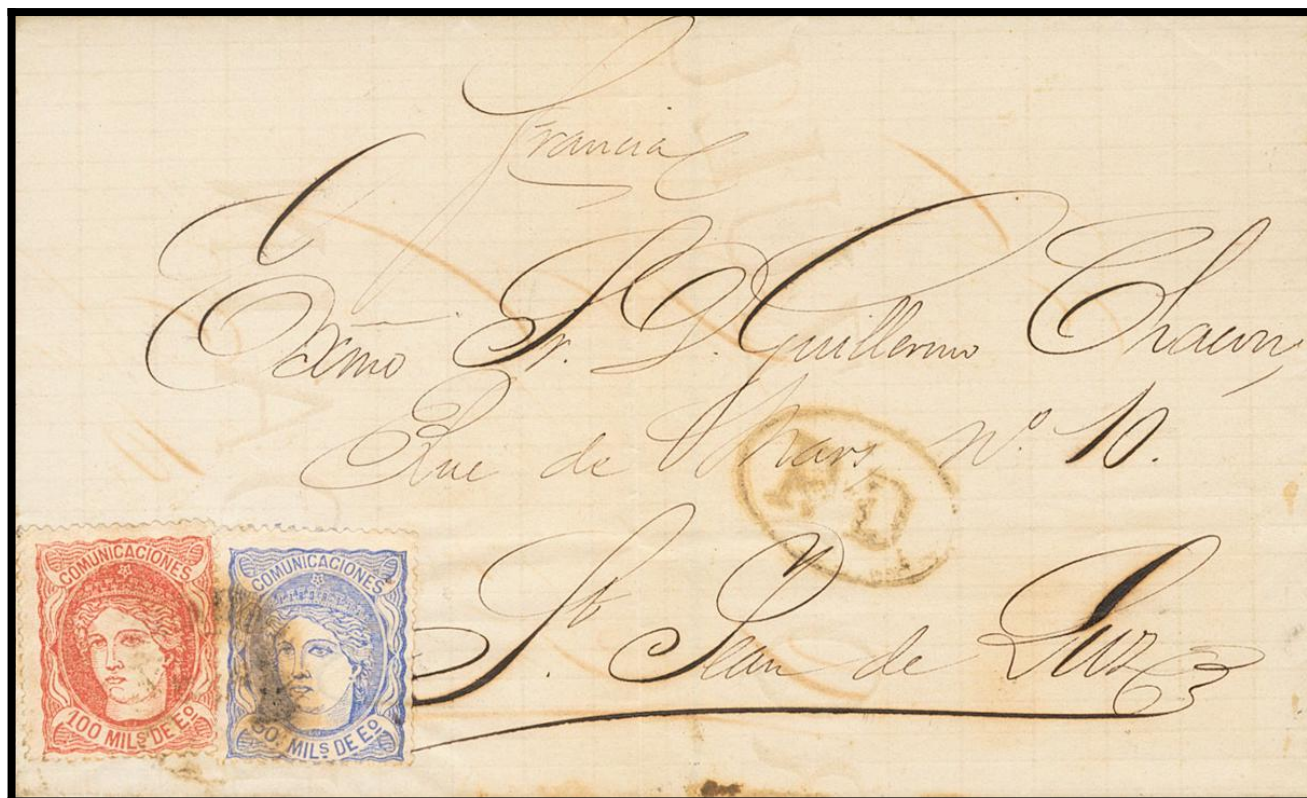 Francia
Exmo Sr. D. Guillermo Chacon,
Rue de nº 10.
P.D
St. Jean de Luz
COMUNICACIONES
100 MILS DE EO
COMUNICACIONES
50. MILS DE EO